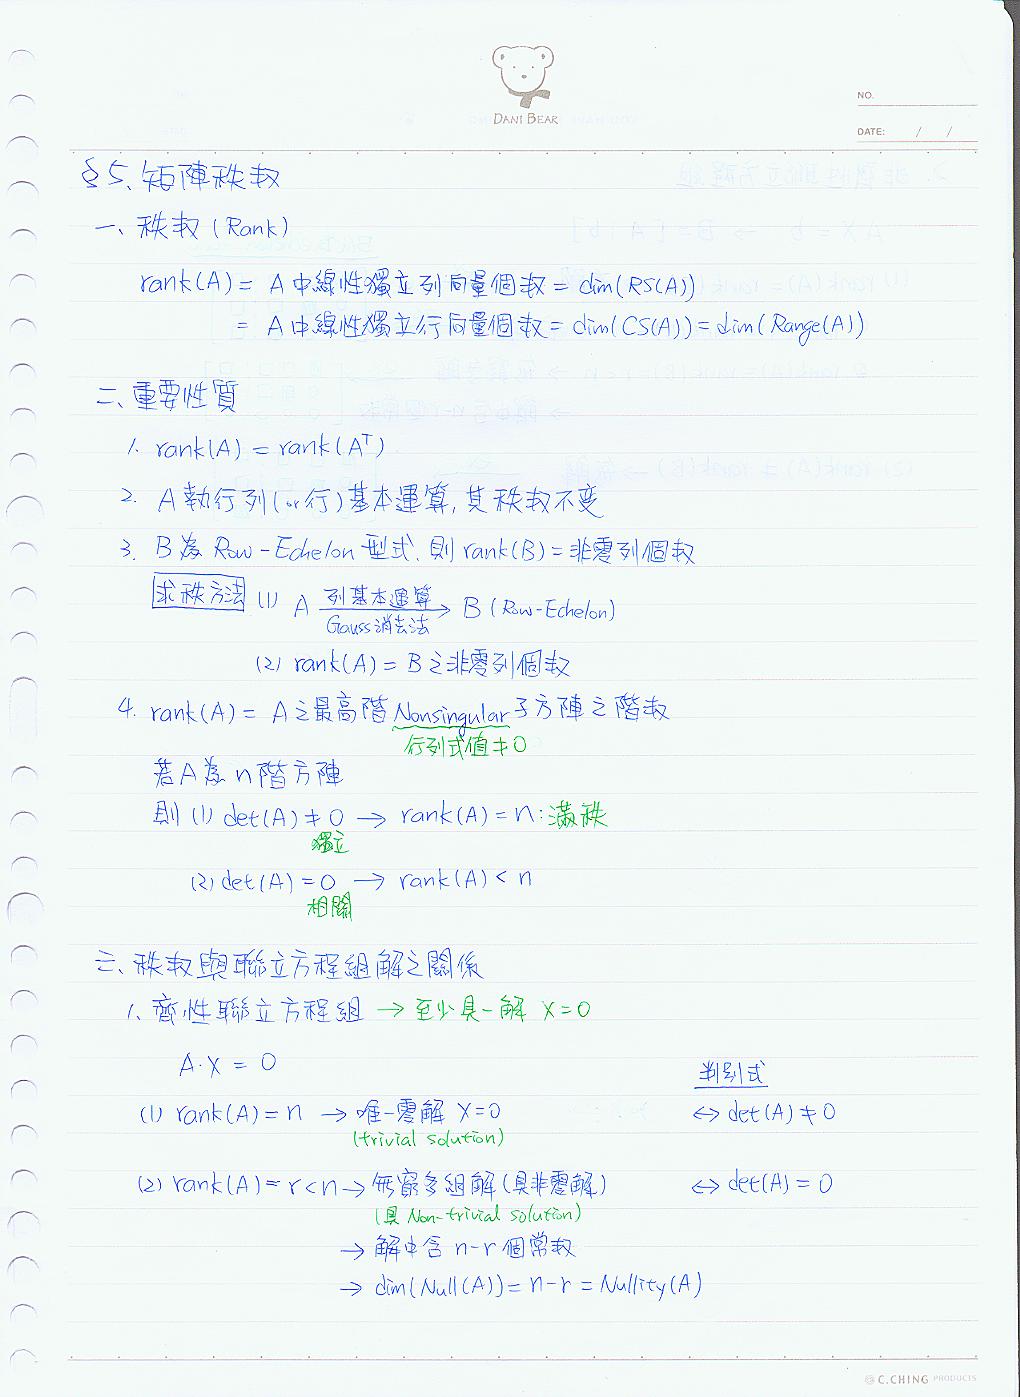 DANI BEAR
NO.
DATE: / /
§5、矩陣秩数
一、秩数 (Rank)
rank(A) = A中線性獨立列向量個数 = dim(RS(A))
= A中線性獨立行向量個数 = dim(CS(A)) = dim(Range(A))
二、重要性質
1. rank(A) = rank(Aᵀ)
2. A執行列(or行)基本運算, 其秩数不变
3. B為Row-Echelon型式, 則rank(B) = 非零列個数
求秩方法 (1) A 列基本運算 Gauss消去法 → B (Row-Echelon)
(2) rank(A) = B之非零列個数
4. rank(A) = A之最高階Nonsingular子方陣之階数
行列式值≠0
若A為n階方陣
則 (1) det(A) ≠ 0 → rank(A) = n : 滿秩
獨立
(2) det(A) = 0 → rank(A) < n
相關
三、秩数與聯立方程組解之關係
1. 齊性聯立方程組 → 至少具一解 X=0
A·X = 0
判別式
(1) rank(A) = n → 唯一零解 X=0 ↔ det(A) ≠ 0
(trivial solution)
(2) rank(A) = r < n → 無窮多組解(具非零解) ↔ det(A) = 0
(具 Non-trivial solution)
→ 解中含 n-r 個常数
→ dim(Null(A)) = n-r = Nullity(A)
C.CHING PRODUCTS